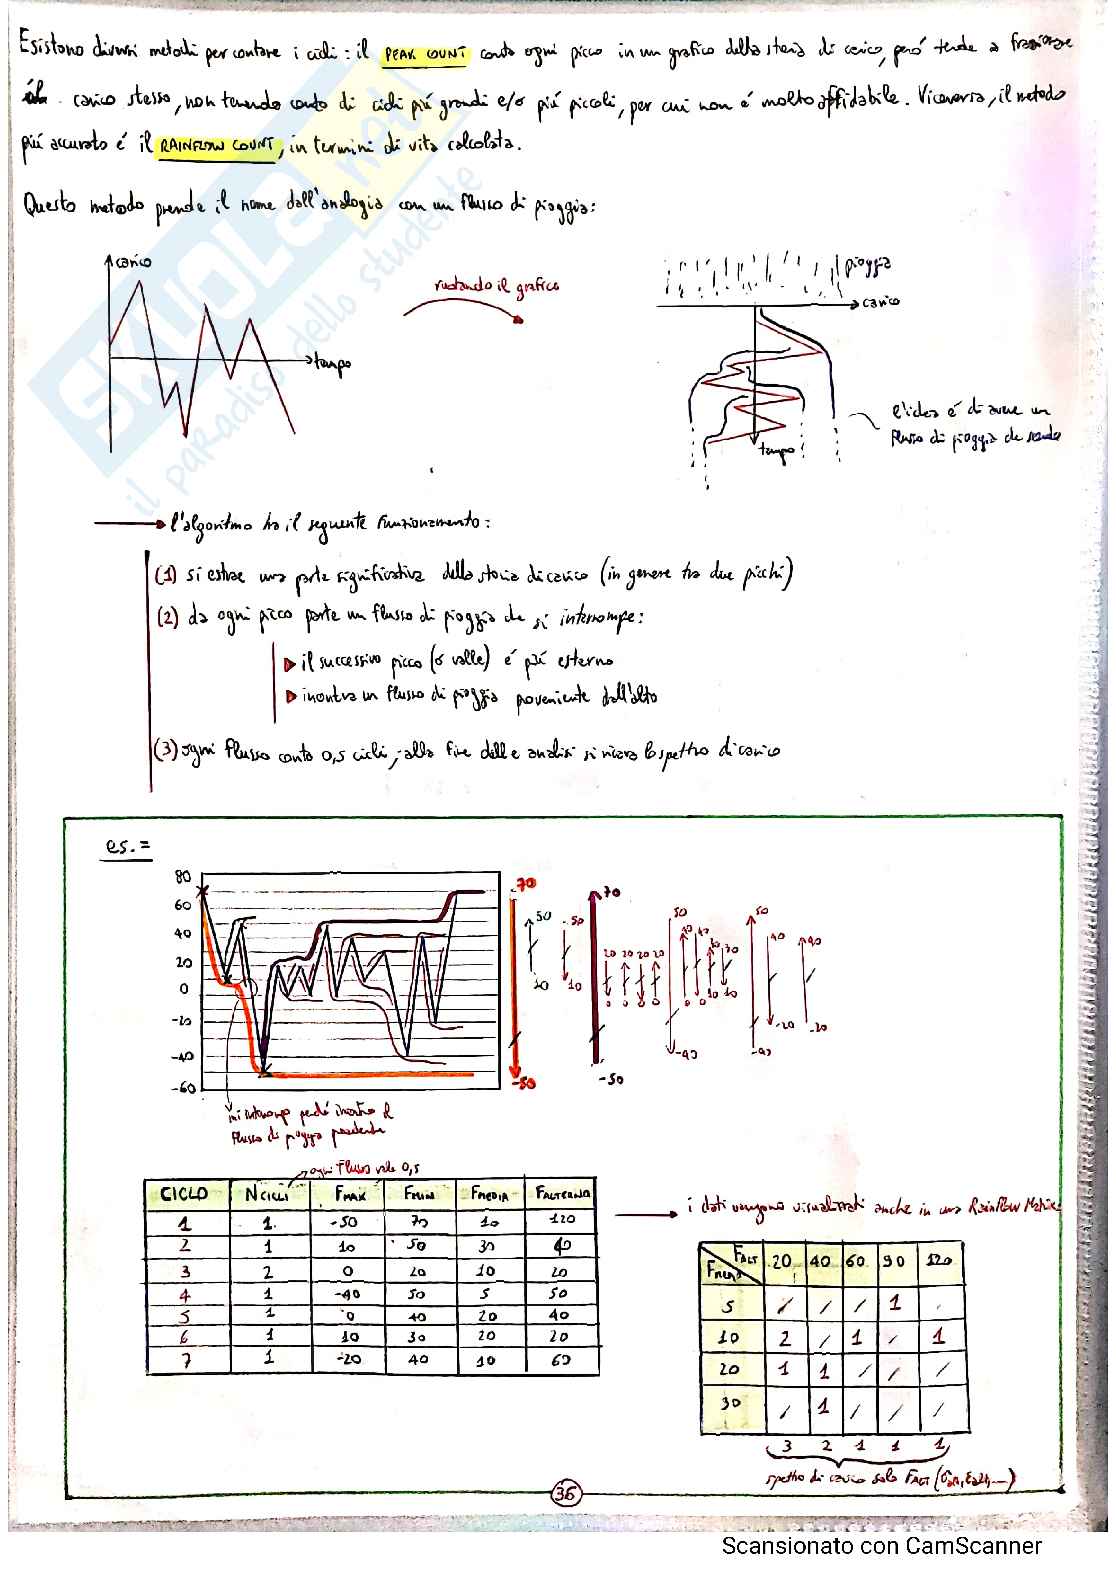 Esistono diversi metodi per contare i cicli: il PEAK COUNT conta ogni picco in un grafico della storia di carico, però tende a frazionare
il carico stesso, non tenendo conto di cicli più grandi e/o più piccoli, per cui non è molto affidabile. Viceversa, il metodo
più accurato è il RAINFLOW COUNT, in termini di vita calcolata.
Questo metodo prende il nome dall'analogia con un flusso di pioggia:
carico
tempo
ruotando il grafico
pioggia
carico
tempo
l'idea è di avere un
flusso di pioggia che scende
SKUOLA.net
il paradiso dello studente
l'algoritmo ha il seguente funzionamento:
(1) si estrae una parte significativa della storia di carico (in genere tra due picchi)
(2) da ogni picco parte un flusso di pioggia che si interrompe:
il successivo picco (o valle) è più esterno
incontra un flusso di pioggia proveniente dall'alto
(3) ogni flusso conta 0,5 cicli, alla fine delle analisi si ricava lo spettro di carico
es.=
80
60
40
20
0
-20
-40
-60
70 50 50 70 50 50
20 20 20 20 40 40 30 30 40 40
10 10 0 0 0 0 0 0 10 10 -20 -20
-50 -50 -40 -40
mi interrompo perché incontro il
flusso di pioggia precedente
ogni flusso vale 0,5
CICLO NCICLI FMAX FMIN FMEDIA FALTERNA
1 1 -50 70 10 120
2 1 10 50 30 40
3 2 0 20 10 20
4 1 -40 50 5 90
5 1 0 40 20 40
6 1 10 30 20 20
7 1 -20 40 10 60
i dati vengono visualizzati anche in una Rainflow Matrix
FALT FMEDIA 20 40 60 90 120
5 / / / 1 .
10 2 / 1 / 1
20 1 1 / / /
30 / 1 / / /
3 2 1 1 1
spettro di carico solo FALT
36
Scansionato con CamScanner